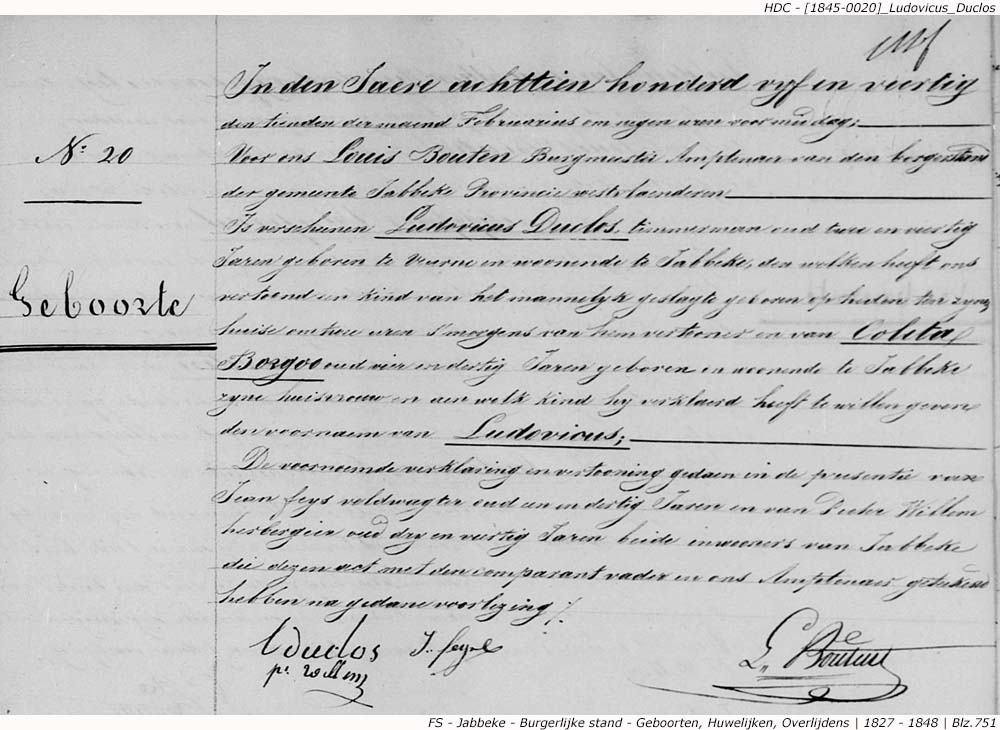 HDC - [1845-0020]_Ludovicus_Duclos
In den Jaere achttien honderd vyf en veertig
den tienden der maend Februarius om negen uren voor middag;
N.º 20
Voor ons Louis Bouten Burgmeester Amptenaer van den borgerstand
der gemeente Jabbeke Provincie westvlaenderen
Is verschenen Ludovicus Duclos, timmerman oud twee en veertig
Jaren geboren te Veurne en woonende te Jabbeke, den welken heeft ons
Geboorte
vertoond een kind van het mannelyk geslagte geboren op heden ten zynen
huise om twee uren s'morgens van hem vertooner en van Coleta
Borgoo oud vier en dertig Jaren geboren en woonende te Jabbeke
zyne huisvrouw en aen welk kind hy verklaerd heeft te willen geven
den voornaem van Ludovicus;
De voornoemde verklaring en vertooning gedaen in de presentie van
Jean feys veldwagter oud een en dertig Jaren en van Pieter Willem
herbergier oud dry en veertig Jaren beide inwoners van Jabbeke
die dezen act met den comparant vader en ons Amptenaer geteekend
hebben na gedane voorlezing /.
Duclos J. feys
pr willem
L. Bouten
FS - Jabbeke - Burgerlijke stand - Geboorten, Huwelijken, Overlijdens | 1827 - 1848 | Blz.751